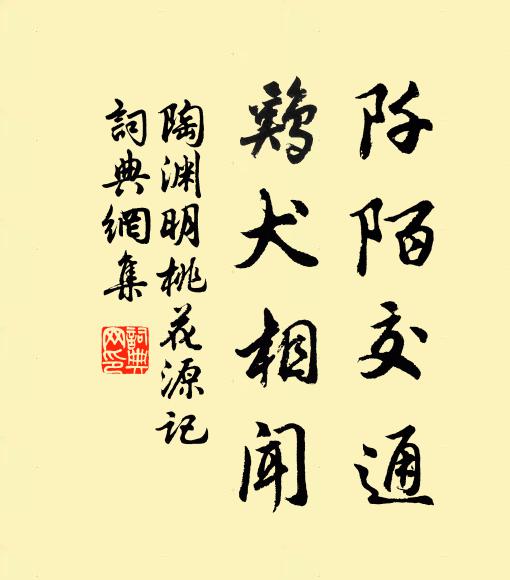 阡陌交通
鷄犬相聞
陶渊明桃花源记
詞典網集
詞典
网印